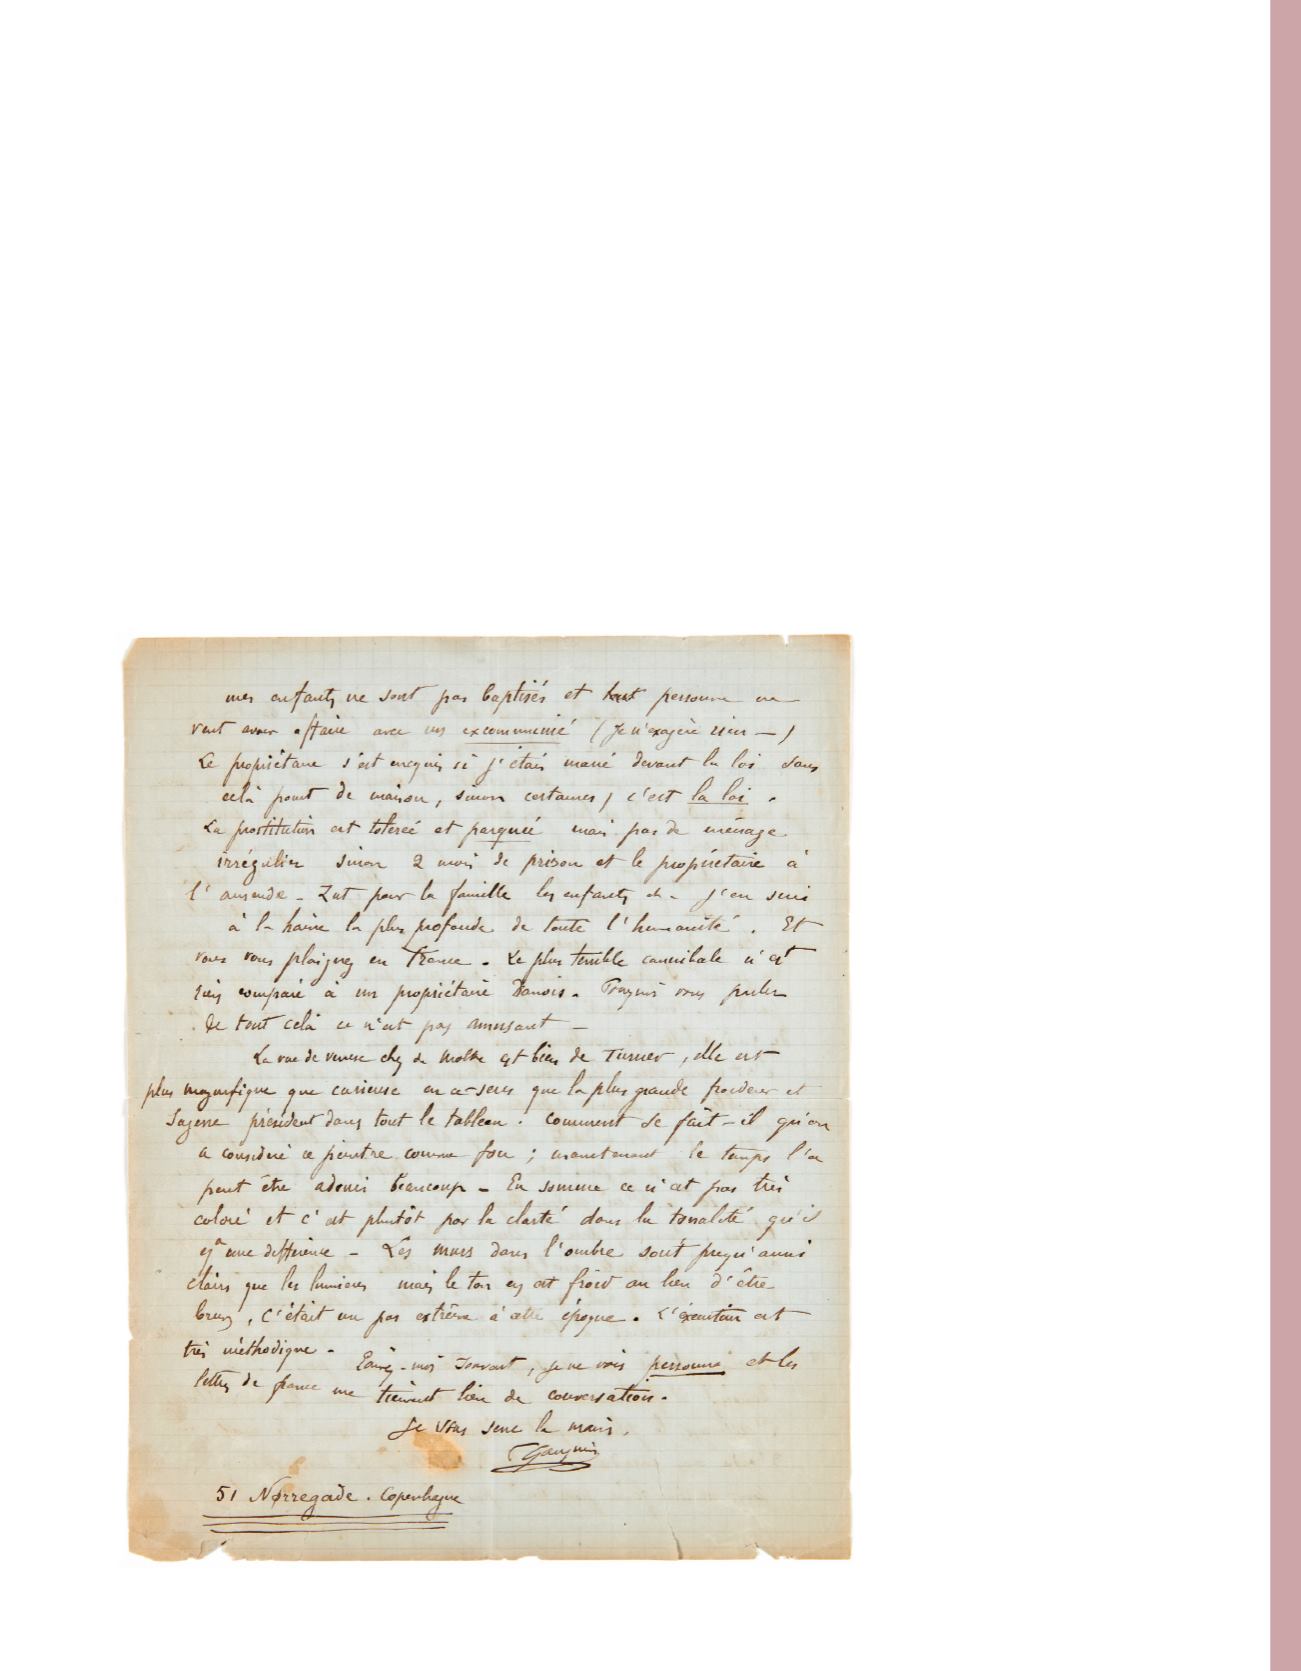 mes enfants ne sont pas baptisés et personne ne
veut avoir affaire avec un excommunié (Je n'exagère rien —)
Le propriétaire s'est enquis si j'étais marié devant la loi sans
celà point de maison, sinon certaines, c'est la loi.
La prostitution est tolereé et parqueé mais pas de ménage
irrégulier sinon 2 mois de prison et le propriétaire à
l'amende - Zut pour la famille les enfants et - J'en suis
à la haine la plus profonde de toute l'humanité. Et
vous vous plaignez en France. Le plus terrible cannibale n'est
rien comparé à un propriétaire Danois. vous parler
de tout celà ce n'est pas amusant —
La vue de venise chez de Moltke est bien de Turner, elle est
plus magnifique que curieuse en ce sens que la plus grande froideur et
Sagesse président dans tout le tableau. Comment se fait-il qu'on
a consideré ce peintre comme fou ; maintenant le temps l'a
peut être adouci beaucoup - En somme ce n'est pas très
coloré et c'est plutôt par la clarté dans la tonalité qu'il
y a une différence - Les murs dans l'ombre sont presqu'aussi
clairs que les lumieres mais le ton en est froid au lieu d'être
brun, C'était un pas extrême à cette époque. L'éxecution est
très méthodique -
Ecrivez-moi souvent, je ne vois personne et les
lettres de france me tiennent lieu de conversation.
Je vous serre la main.
P Gauguin
51 Nørregade. Copenhague